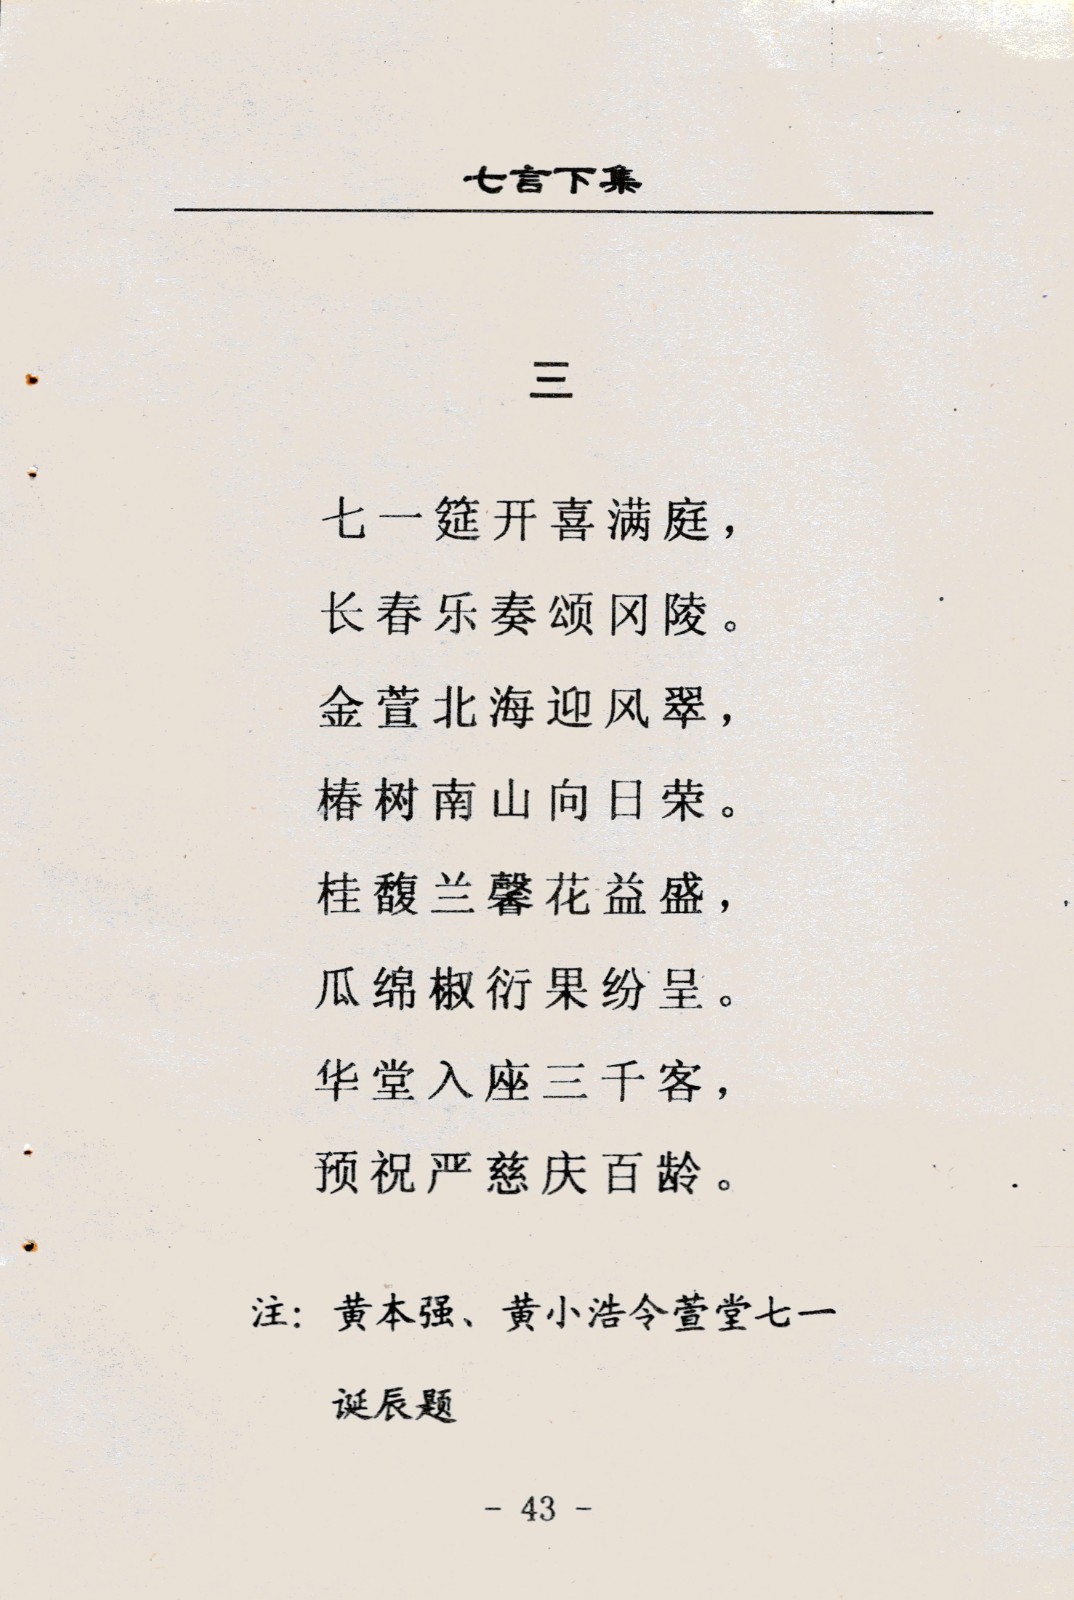 七言下集
三
七一筵开喜满庭，
长春乐奏颂冈陵。
金萱北海迎风翠，
椿树南山向日荣。
桂馥兰馨花益盛，
瓜绵椒衍果纷呈。
华堂入座三千客，
预祝严慈庆百龄。
注：黄本强、黄小浩令萱堂七一
诞辰题
- 43 -